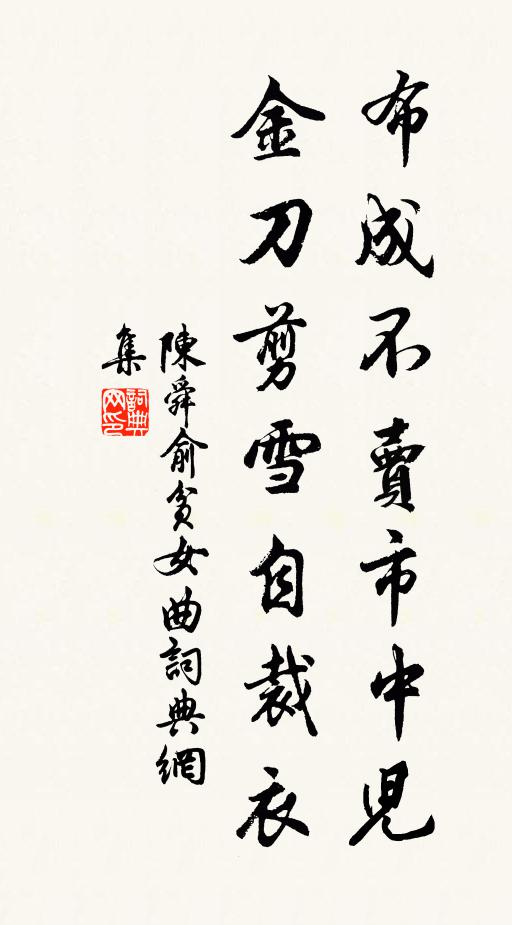 布成不賣市中兒
金刀剪雪自裁衣
陳舜俞貧女曲詞典網
集
詞典
网印